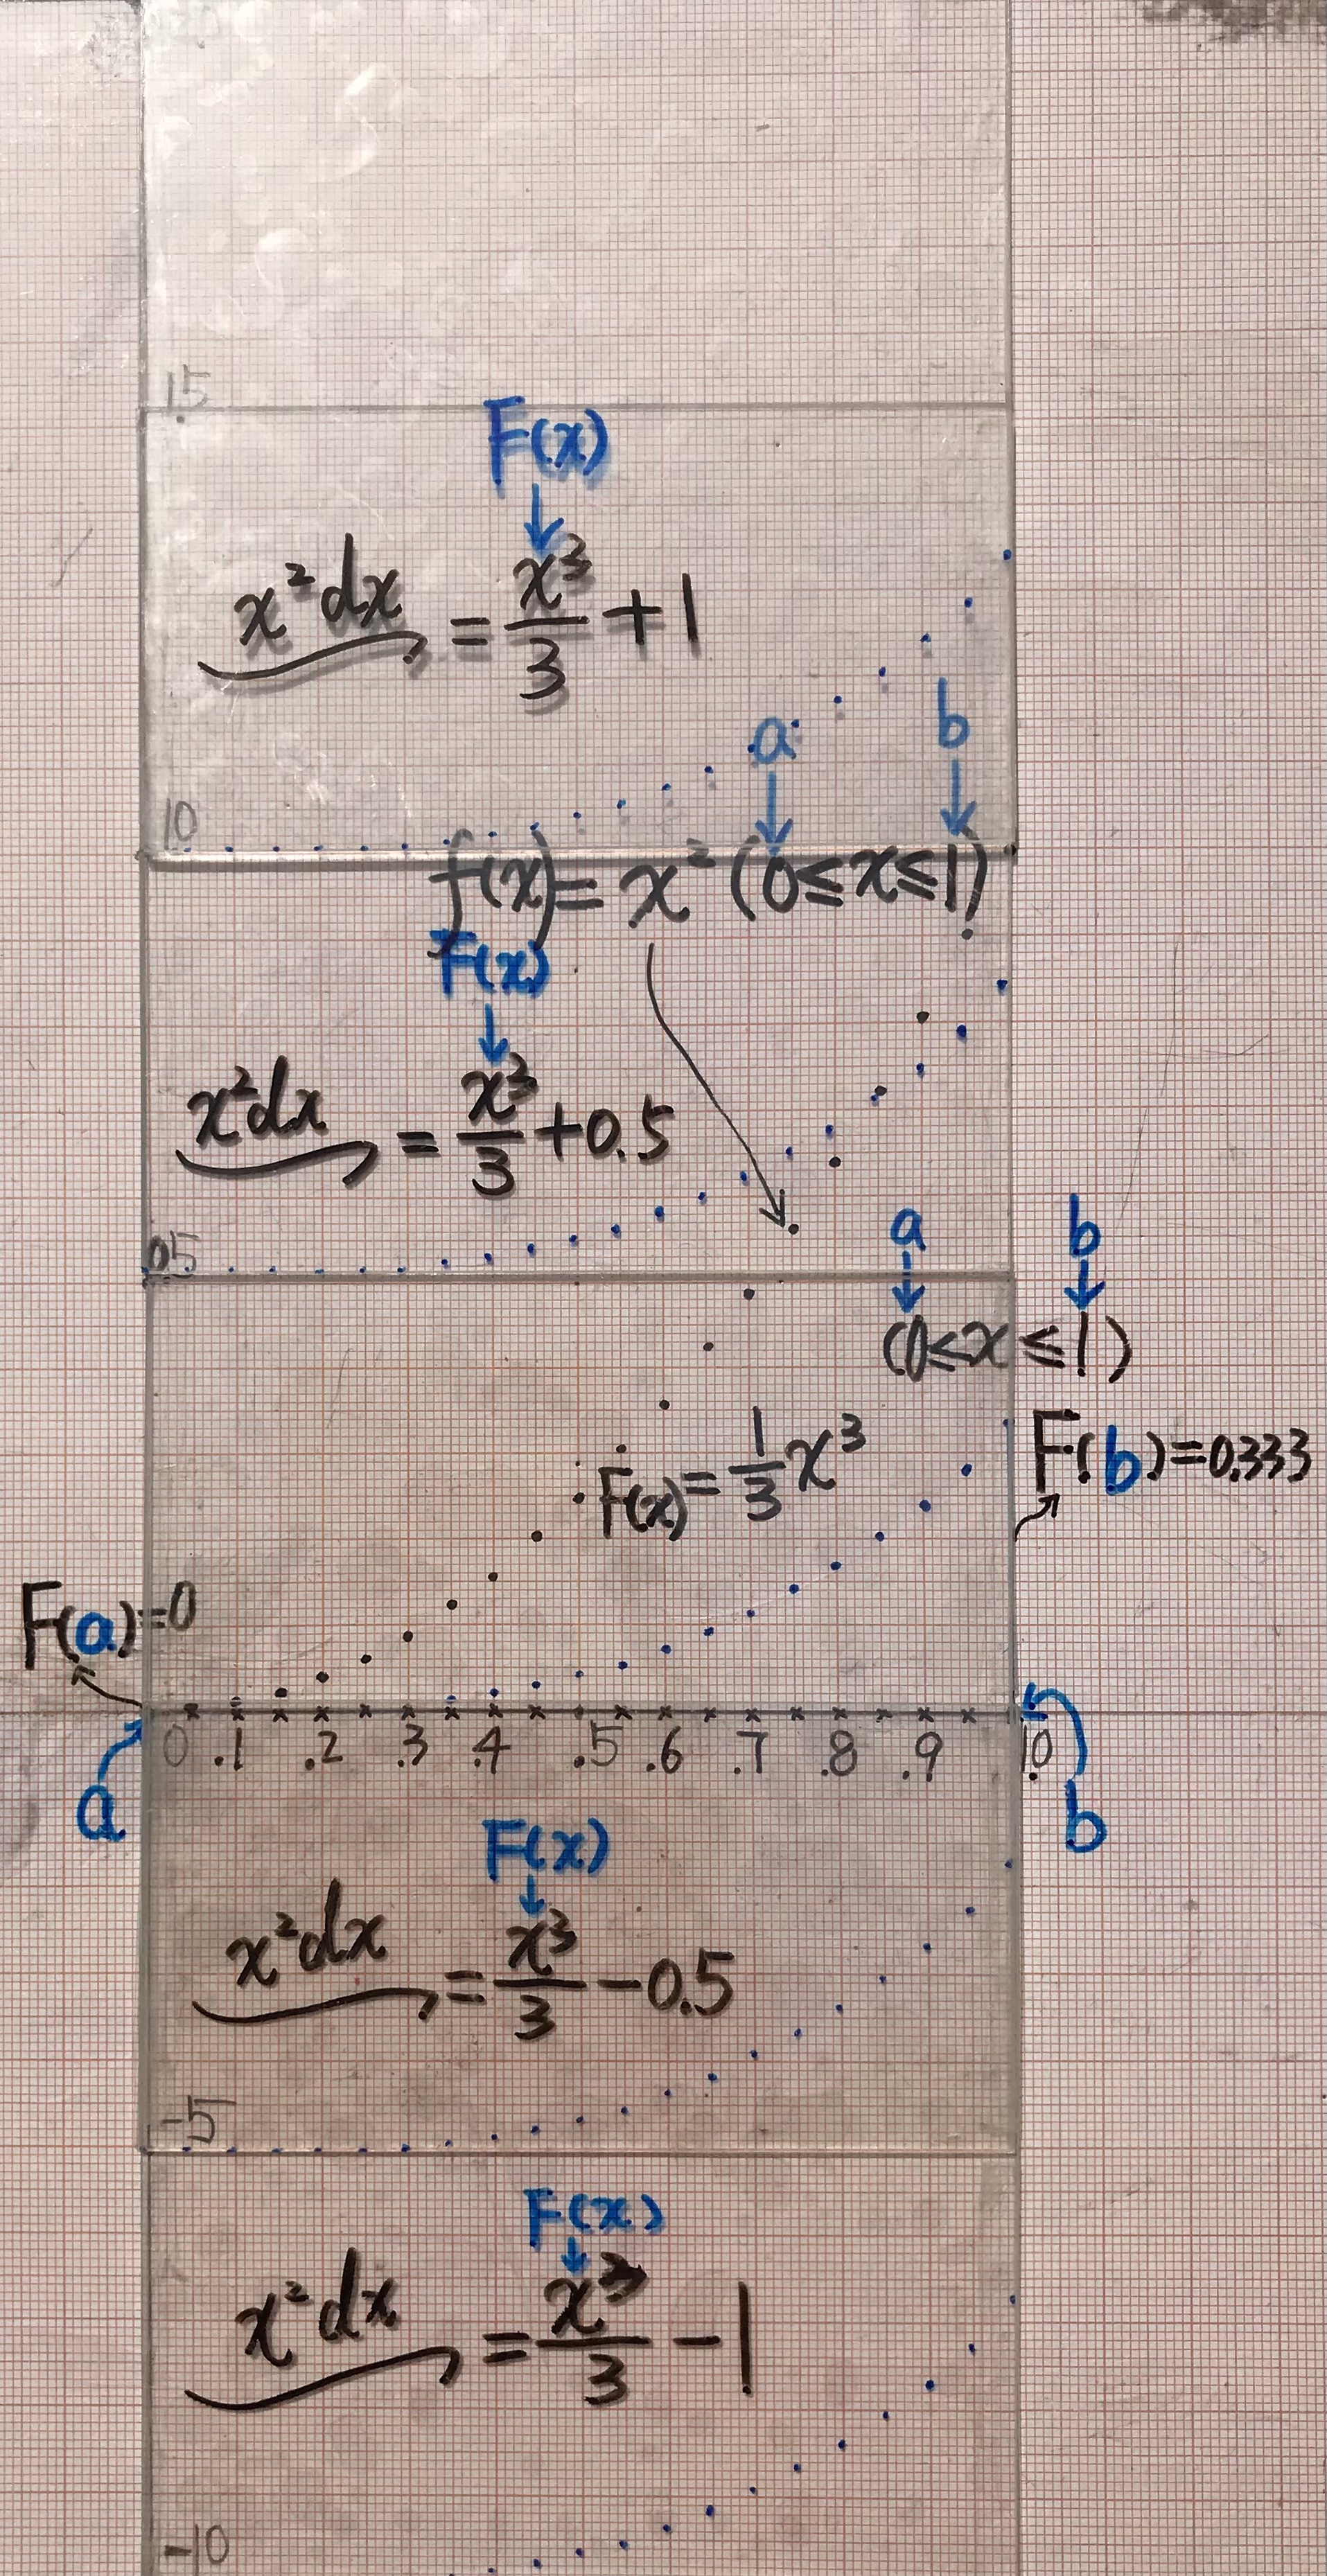 15
F(x)
↓
x²dx = x³/3 + 1
a b
↓ ↓
10
f(x) = x² (0≤x≤1)
F(x)
↓
x²dx = x³/3 + 0.5
05
a b
↓ ↓
(0≤x≤1)
F(x) = 1/3 x³
F(b) = 0.333
F(a) = 0
0 .1 .2 .3 .4 .5 .6 .7 .8 .9 1.0
a b
F(x)
↓
x²dx = x³/3 − 0.5
-5
F(x)
↓
x²dx = x³/3 − 1
-10